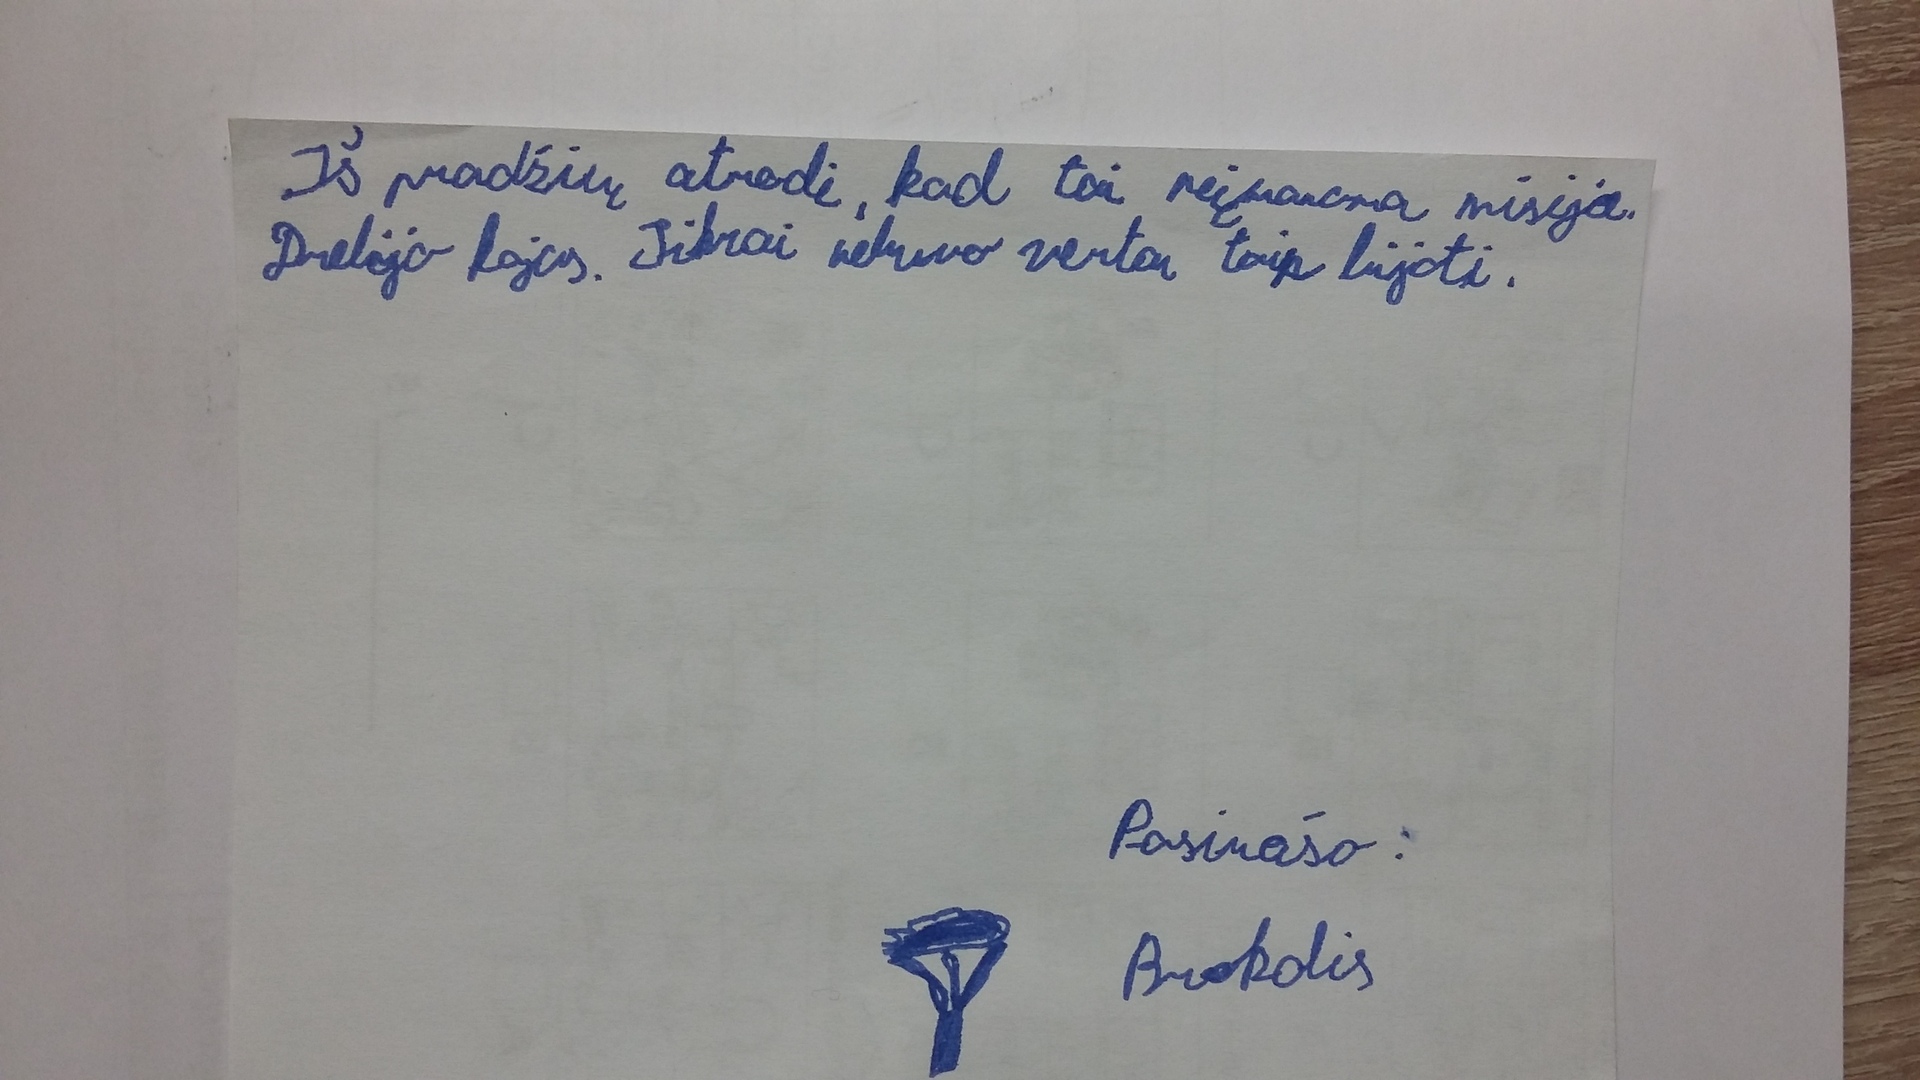 Iš pradžių atrodė, kad tai neįmanoma misija.
Drebėjo kojos. Tikrai nebuvo verta taip bijoti.
Pasirašo:
Brokolis